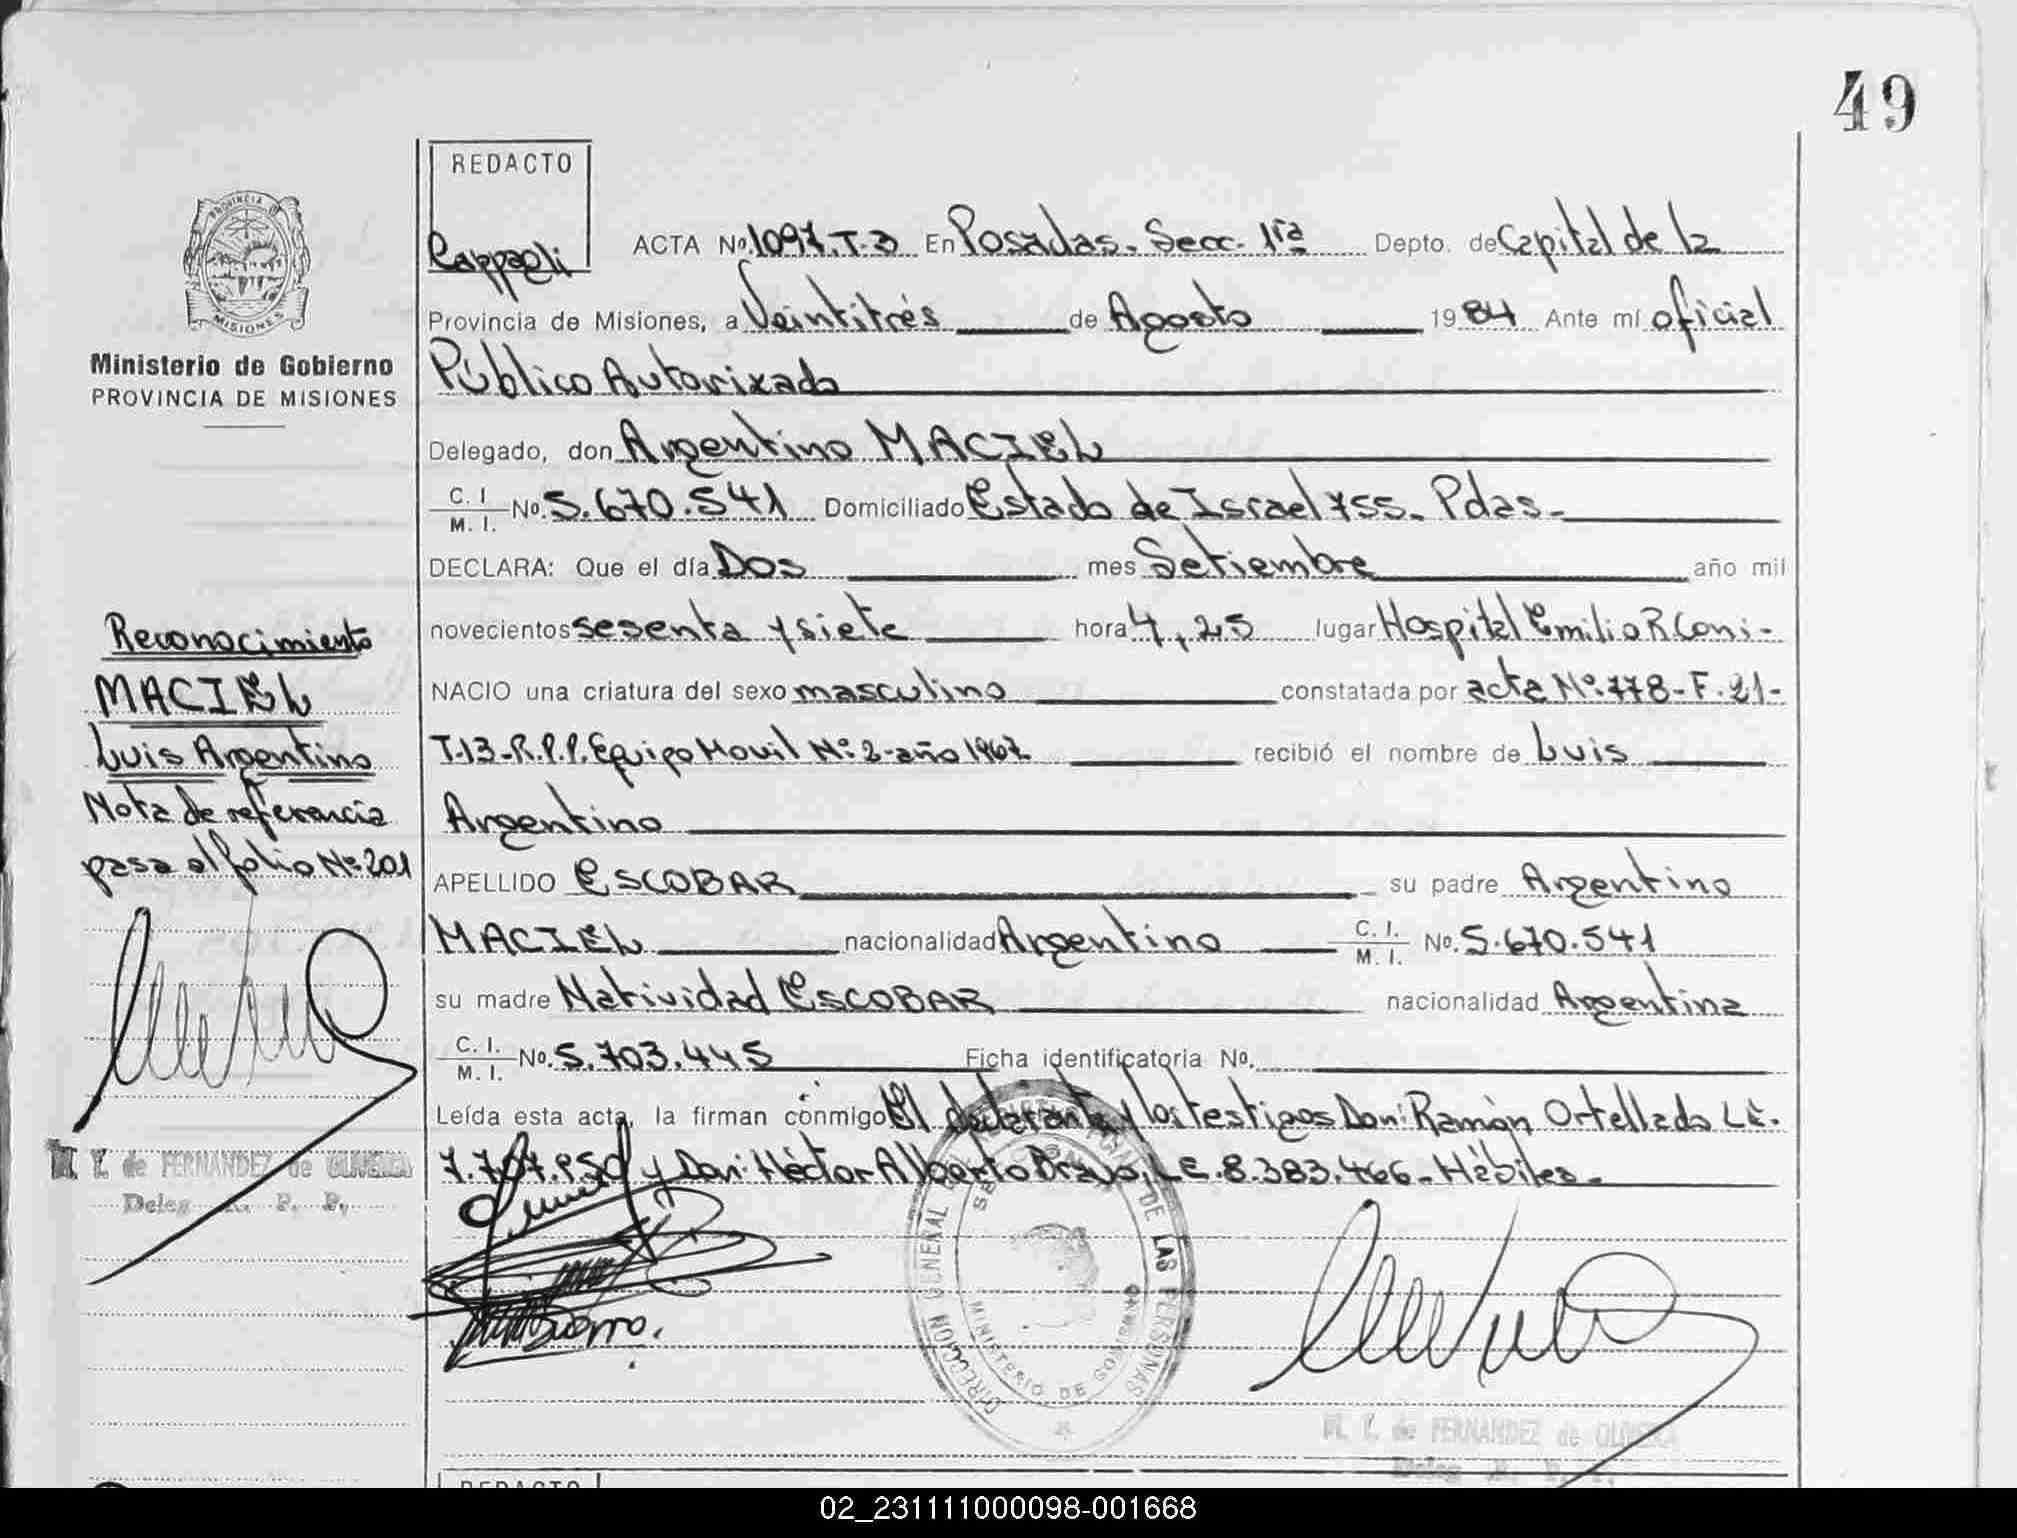 49
REDACTO
Rappagli
ACTA Nº 1097.T-3 En Posadas. Secc. 1ra Depto. de Capital de la
Provincia de Misiones, a Veintitrés de Agosto 1984 Ante mí oficial
Público Autorizado
Delegado, don Argentino MACIEL
C. I. M. I. Nº. 5.670.541 Domiciliado Estado de Israel 755. Pdas-
DECLARA: Que el día Dos mes Setiembre año mil
novecientos sesenta y siete hora 4,25 lugar Hospital Emilio R Coni-
NACIO una criatura del sexo masculino constatada por acta Nº.778-F.21-
T-13-R.P.P. Equipo Movil Nº: 2-año 1967 recibió el nombre de Luis
Argentino
APELLIDO ESCOBAR su padre Argentino
MACIEL nacionalidad Argentino C. I. M. I. Nº. 5.670.541
su madre Natividad ESCOBAR nacionalidad Argentina
C. I. M. I. Nº. 5.703.445 Ficha identificatoria Nº.
Leída esta acta, la firman conmigo El declarante y los testigos Don: Ramón Ortellado L.E.
y Don: Héctor Alberto Bravo, L.E. 8.383.466. Hábiles.
PROVINCIA DE
MISIONES
Ministerio de Gobierno
PROVINCIA DE MISIONES
Reconocimiento
MACIEL
Luis Argentino
Nota de referencia
pasa al folio Nº 201
M. E. de FERNANDEZ de OLIVEIRA
Deleg. R. P. P.
DIRECCION GENERAL DE LAS PERSONAS
MINISTERIO DE GOBIERNO
M. E. de FERNANDEZ de OLIVEIRA
Deleg. R. P. P.
REDACTO
02_231111000098-001668